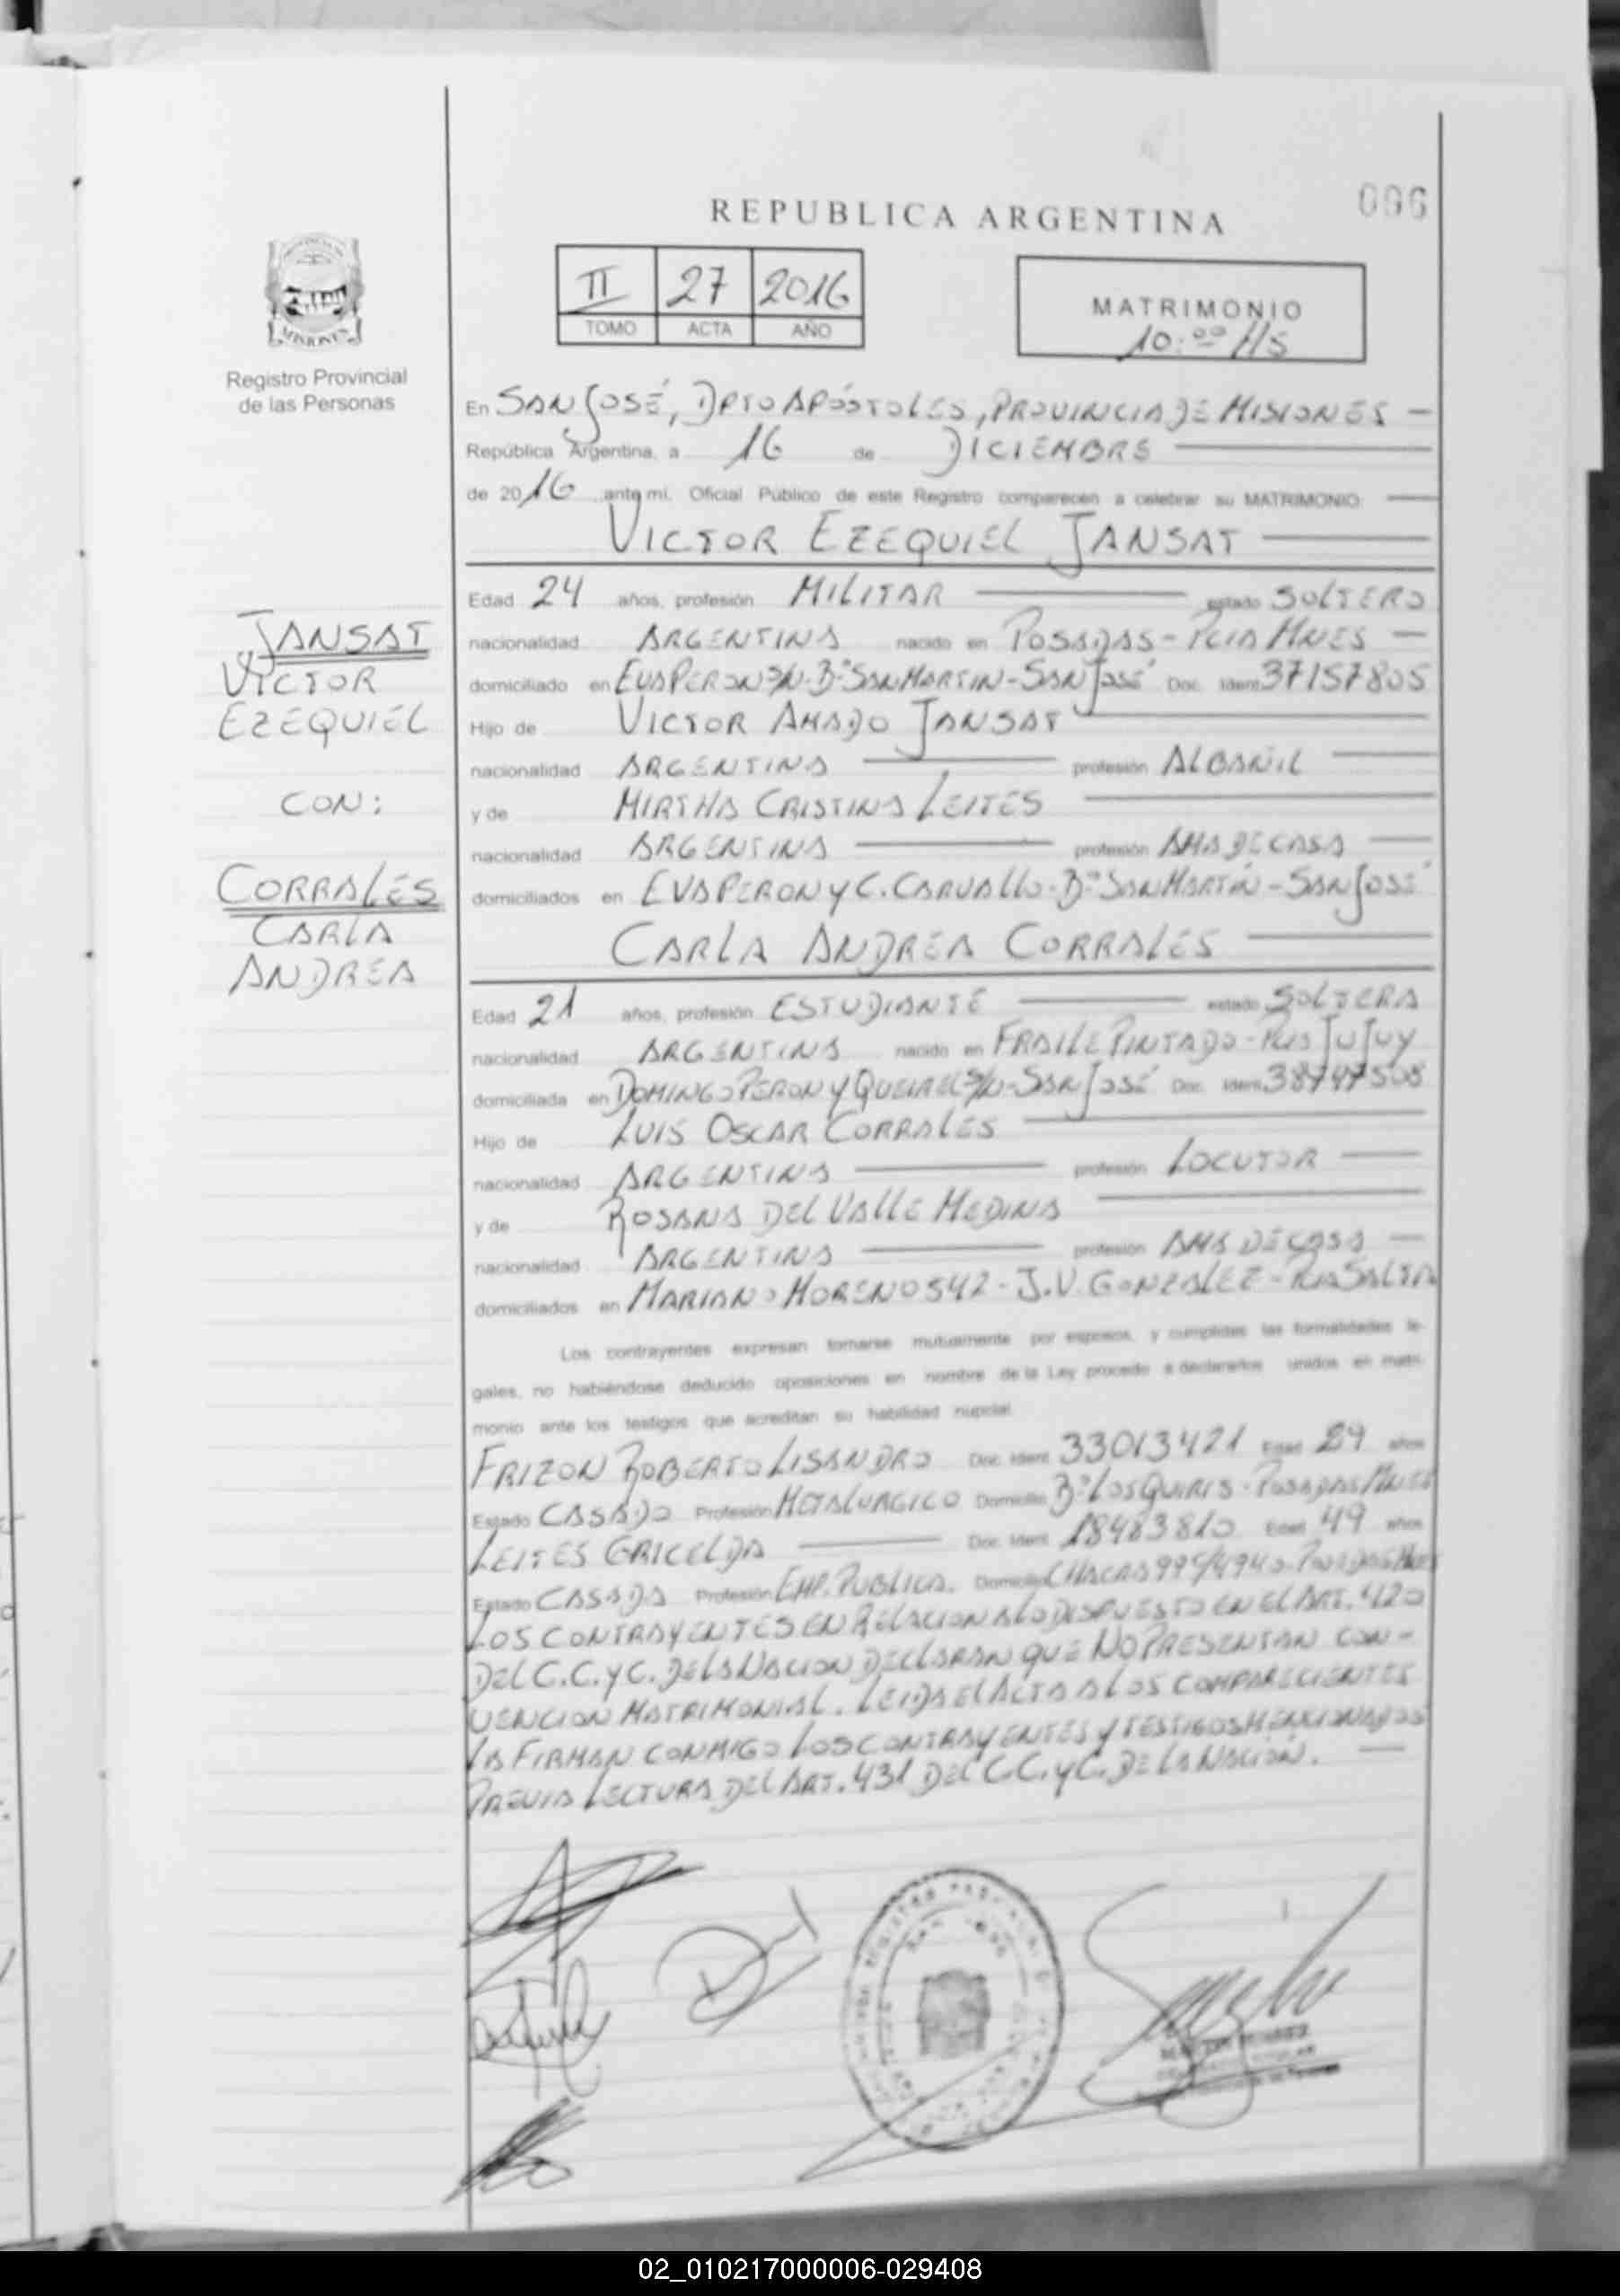 006
REPUBLICA ARGENTINA
II 27 2016
TOMO ACTA AÑO
MATRIMONIO
10:00 HS
MISIONES
Registro Provincial
de las Personas
En SAN JOSÉ, DPTO APÓSTOLES, PROVINCIA DE MISIONES
República Argentina, a 16 de DICIEMBRE
de 2016 ante mi, Oficial Público de este Registro comparecen a celebrar su MATRIMONIO:
VICTOR EZEQUIEL JANSAT
Edad 24 años, profesión MILITAR estado SOLTERO
nacionalidad ARGENTINA nacido en POSADAS - PCIA MNES
domiciliado en EVA PERON S/N - Bº SAN MARTIN - SAN JOSÉ Doc. Ident 37157805
Hijo de VICTOR AMADO JANSAT
nacionalidad ARGENTINA profesión ALBAÑIL
y de MIRTHA CRISTINA LEITES
nacionalidad ARGENTINA profesión AMA DE CASA
domiciliados en EVA PERON Y C. CARVALLO - Bº SAN MARTIN - SAN JOSÉ
CARLA ANDREA CORRALES
JANSAT
VICTOR
EZEQUIEL
CON:
CORRALES
CARLA
ANDREA
Edad 21 años, profesión ESTUDIANTE estado SOLTERA
nacionalidad ARGENTINA nacido en FRAILE PINTADO - PCIA JUJUY
domiciliada en DOMINGO PERON Y QUEIREL S/N - SAN JOSÉ Doc. Ident 38747508
Hijo de LUIS OSCAR CORRALES
nacionalidad ARGENTINA profesión LOCUTOR
y de ROSANA DEL VALLE MEDINA
nacionalidad ARGENTINA profesión AMA DE CASA
domiciliados en MARIANO MORENO 542 - J.V. GONZALEZ - PCIA SALTA
Los contrayentes expresan tomarse mutuamente por esposos, y cumplidas las formalidades le-
gales, no habiéndose deducido oposiciones en nombre de la Ley procedo a declararlos unidos en matri-
monio ante los testigos que acreditan su habilidad nupcial.
FRIZON ROBERTO LISANDRO Doc. Ident 33013421 Edad 29 años
Estado CASADO Profesión METALURGICO Domicilio Bº LOS QUIRIS - POSADAS MNES
LEITES GRICELDA Doc. Ident 18483810 Edad 49 años
Estado CASADA Profesión EMP. PUBLICA. Domicilio CHACRA
LOS CONTRAYENTES EN RELACION A LO DISPUESTO EN EL ART. 420
DEL C.C. Y C. DE LA NACION DECLARAN QUE NO PRESENTAN CON-
VENCION MATRIMONIAL. LEIDA EL ACTA A LOS COMPARECIENTES
LA FIRMAN CONMIGO LOS CONTRAYENTES Y TESTIGOS MENCIONADOS
PREVIA LECTURA DEL ART. 431 DEL C.C. Y C. DE LA NACIÓN.
02_010217000006-029408